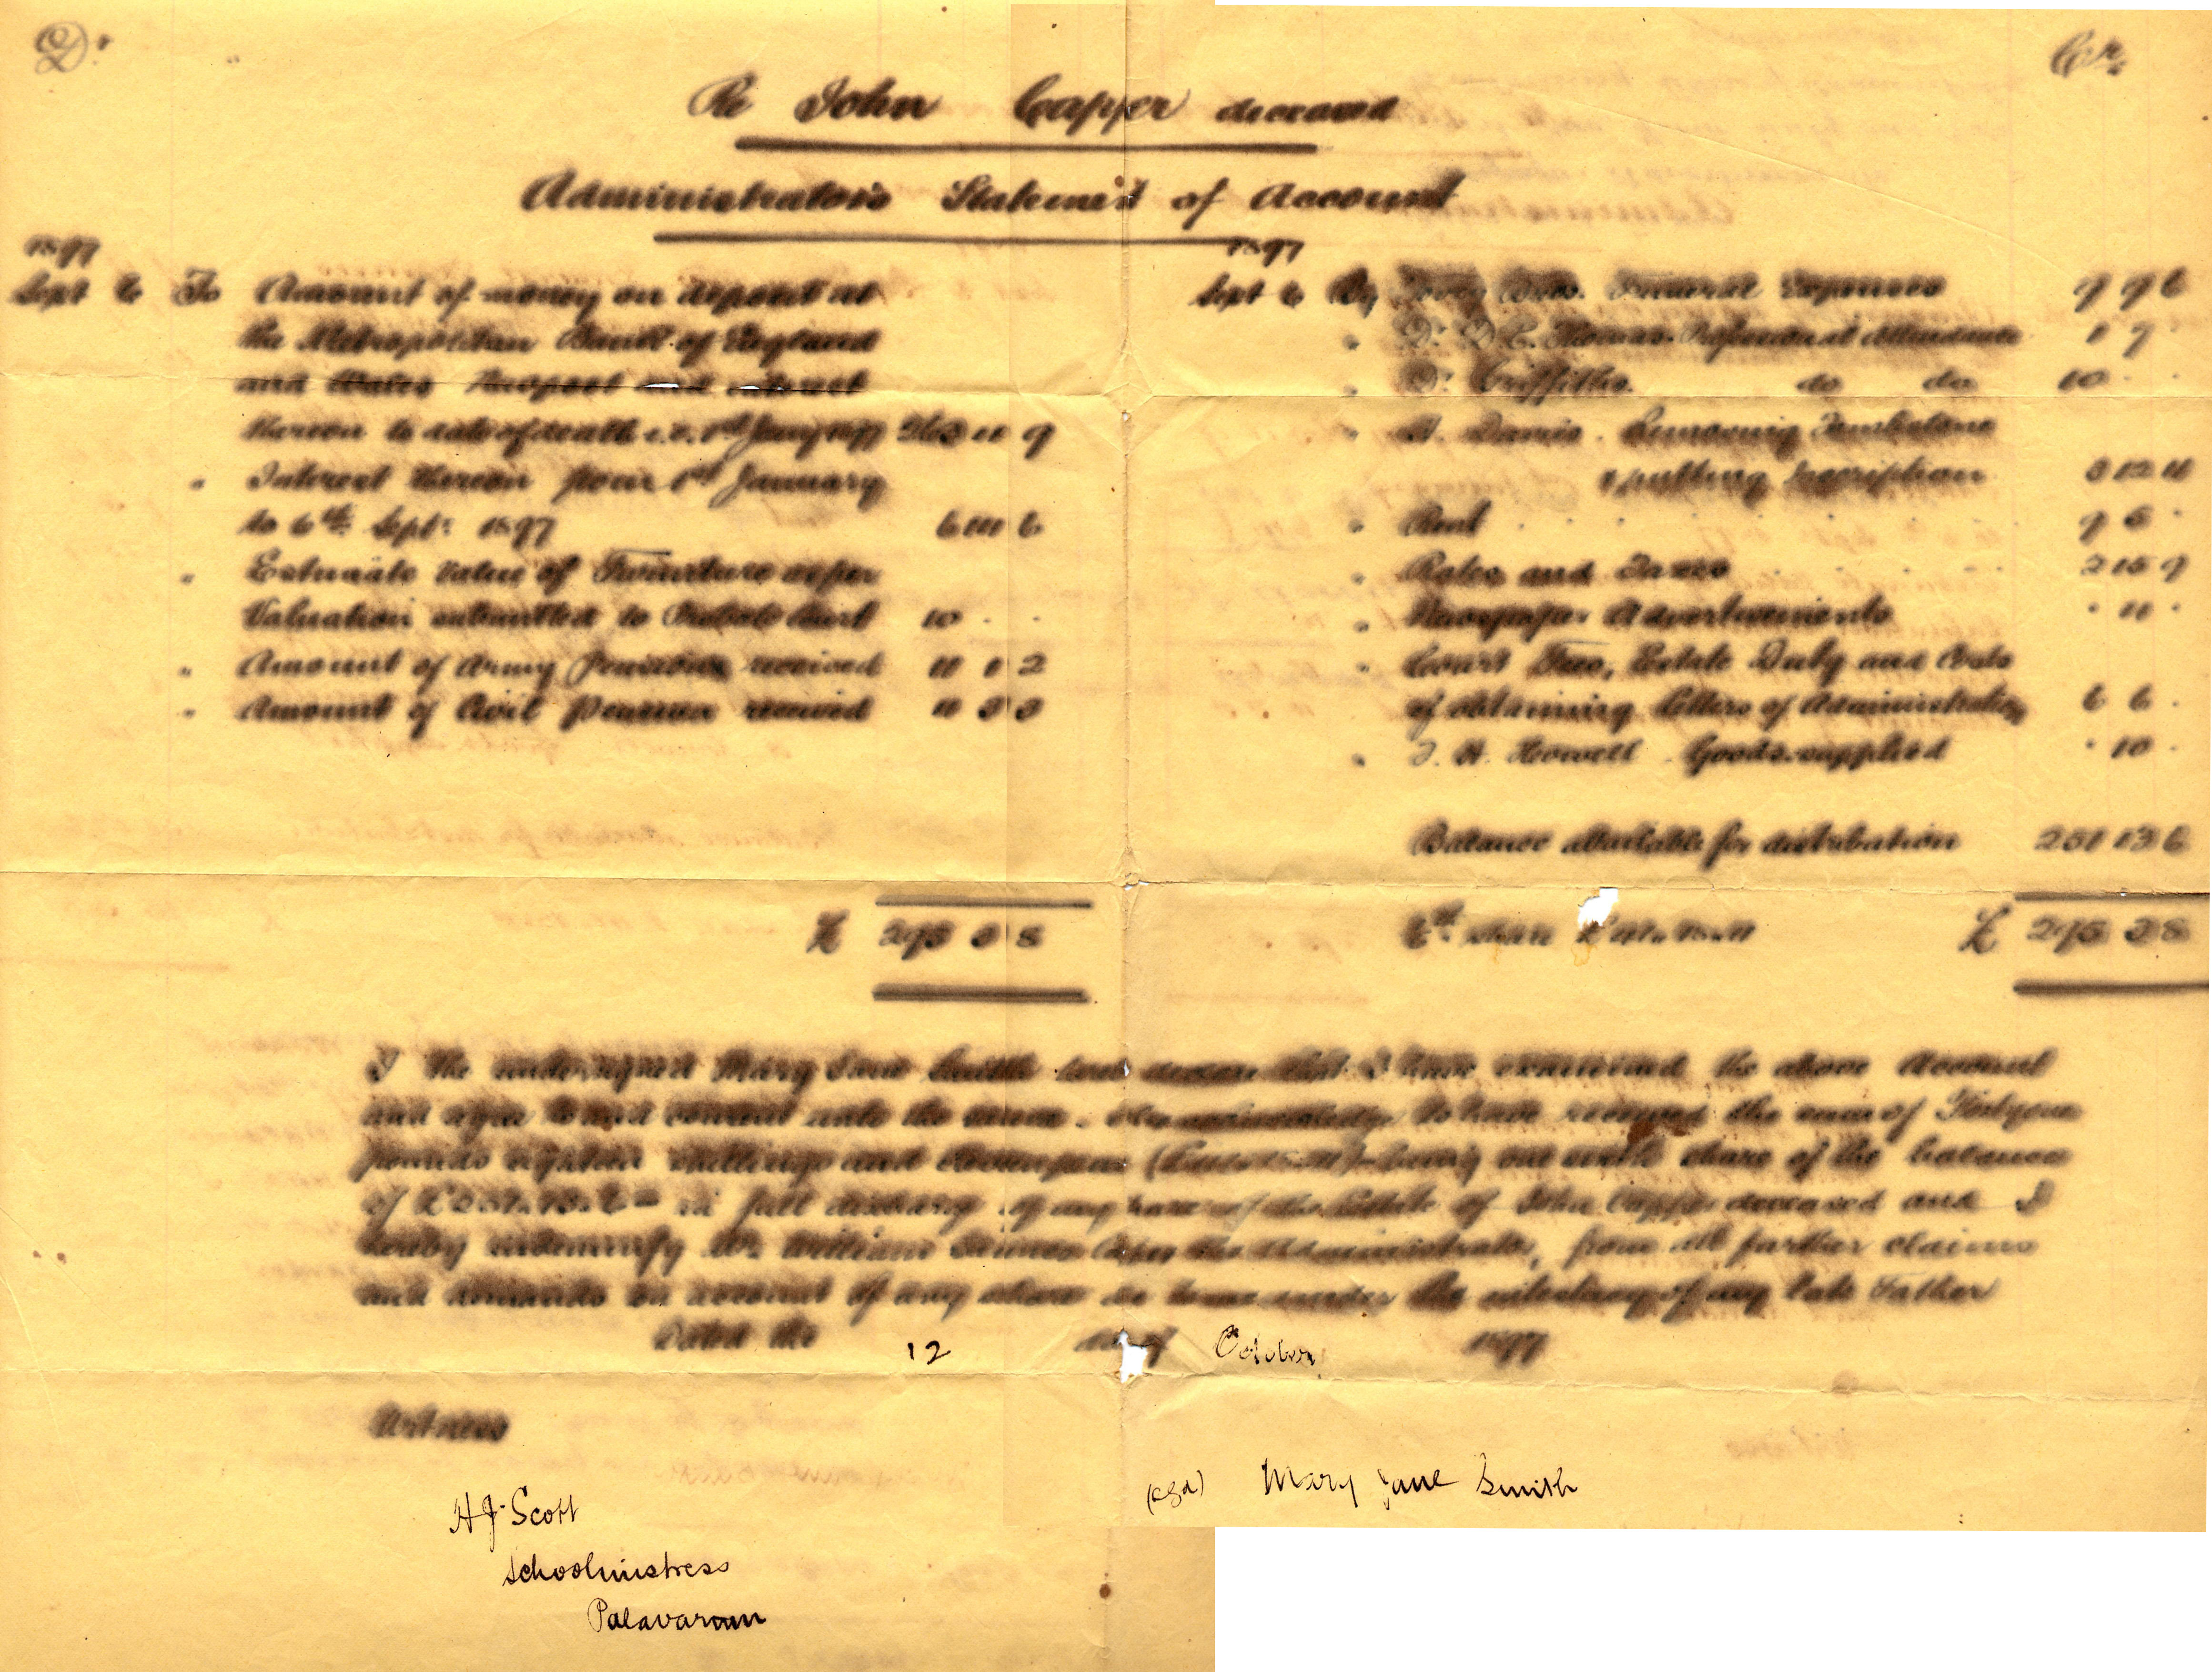 Dr. Cr.
Re John Capper deceased
Administrators Statement of Account
1897
Sept 6 To Amount of money on deposit at
the Metropolitan Bank of England
and Wales Newport and interest
thereon to date of death i.e. 1st Jany 1897
" Interest thereon from 1st January
to 6th Sept. 1897
" Estimate value of Furniture as per
Valuation submitted to Probate Court 10 . .
" Amount of Army Pension received 11 1 2
" Amount of Civil Pension received
£ 295 3 8
1897
Sept 6 By Bros. Funeral Expenses 9 9 6
" Dr. D. C. Thomas. Professional Attendance 1 7
" Dr. Griffiths do do 10 . .
" H. Davis. Removing Tombstone
& putting Inscription 3 12 11
" Rent 9 5 .
" Rates and Taxes 2 15 9
" Newspaper Advertisements . 11 .
" Court Fees, Estate Duty and Costs
of obtaining Letters of Administration 6 6 .
" J. H. Howell. Goods supplied . 10 .
Balance available for distribution 251 13 6
6th share £ 41. 18. 11 £ 295 3 8
I the undersigned Mary Jane Smith declare that I have examined the above Account
and agree to and consent unto the same. to have received the sum of Forty one
pounds eighteen shillings and eleven pence (£41. 18. 11) being one sixth share of the balance
of £251. 13. 6 in full discharge of my share of the Estate of John Capper deceased and I
hereby indemnify Mr. William James Capper the Administrator, from all further claims
and demands on account of my share under the intestacy of my late Father
Dated the 12 day of October 1897
Witness
(sgd) Mary Jane Smith
H J Scott
Schoolmistress
Palavaram